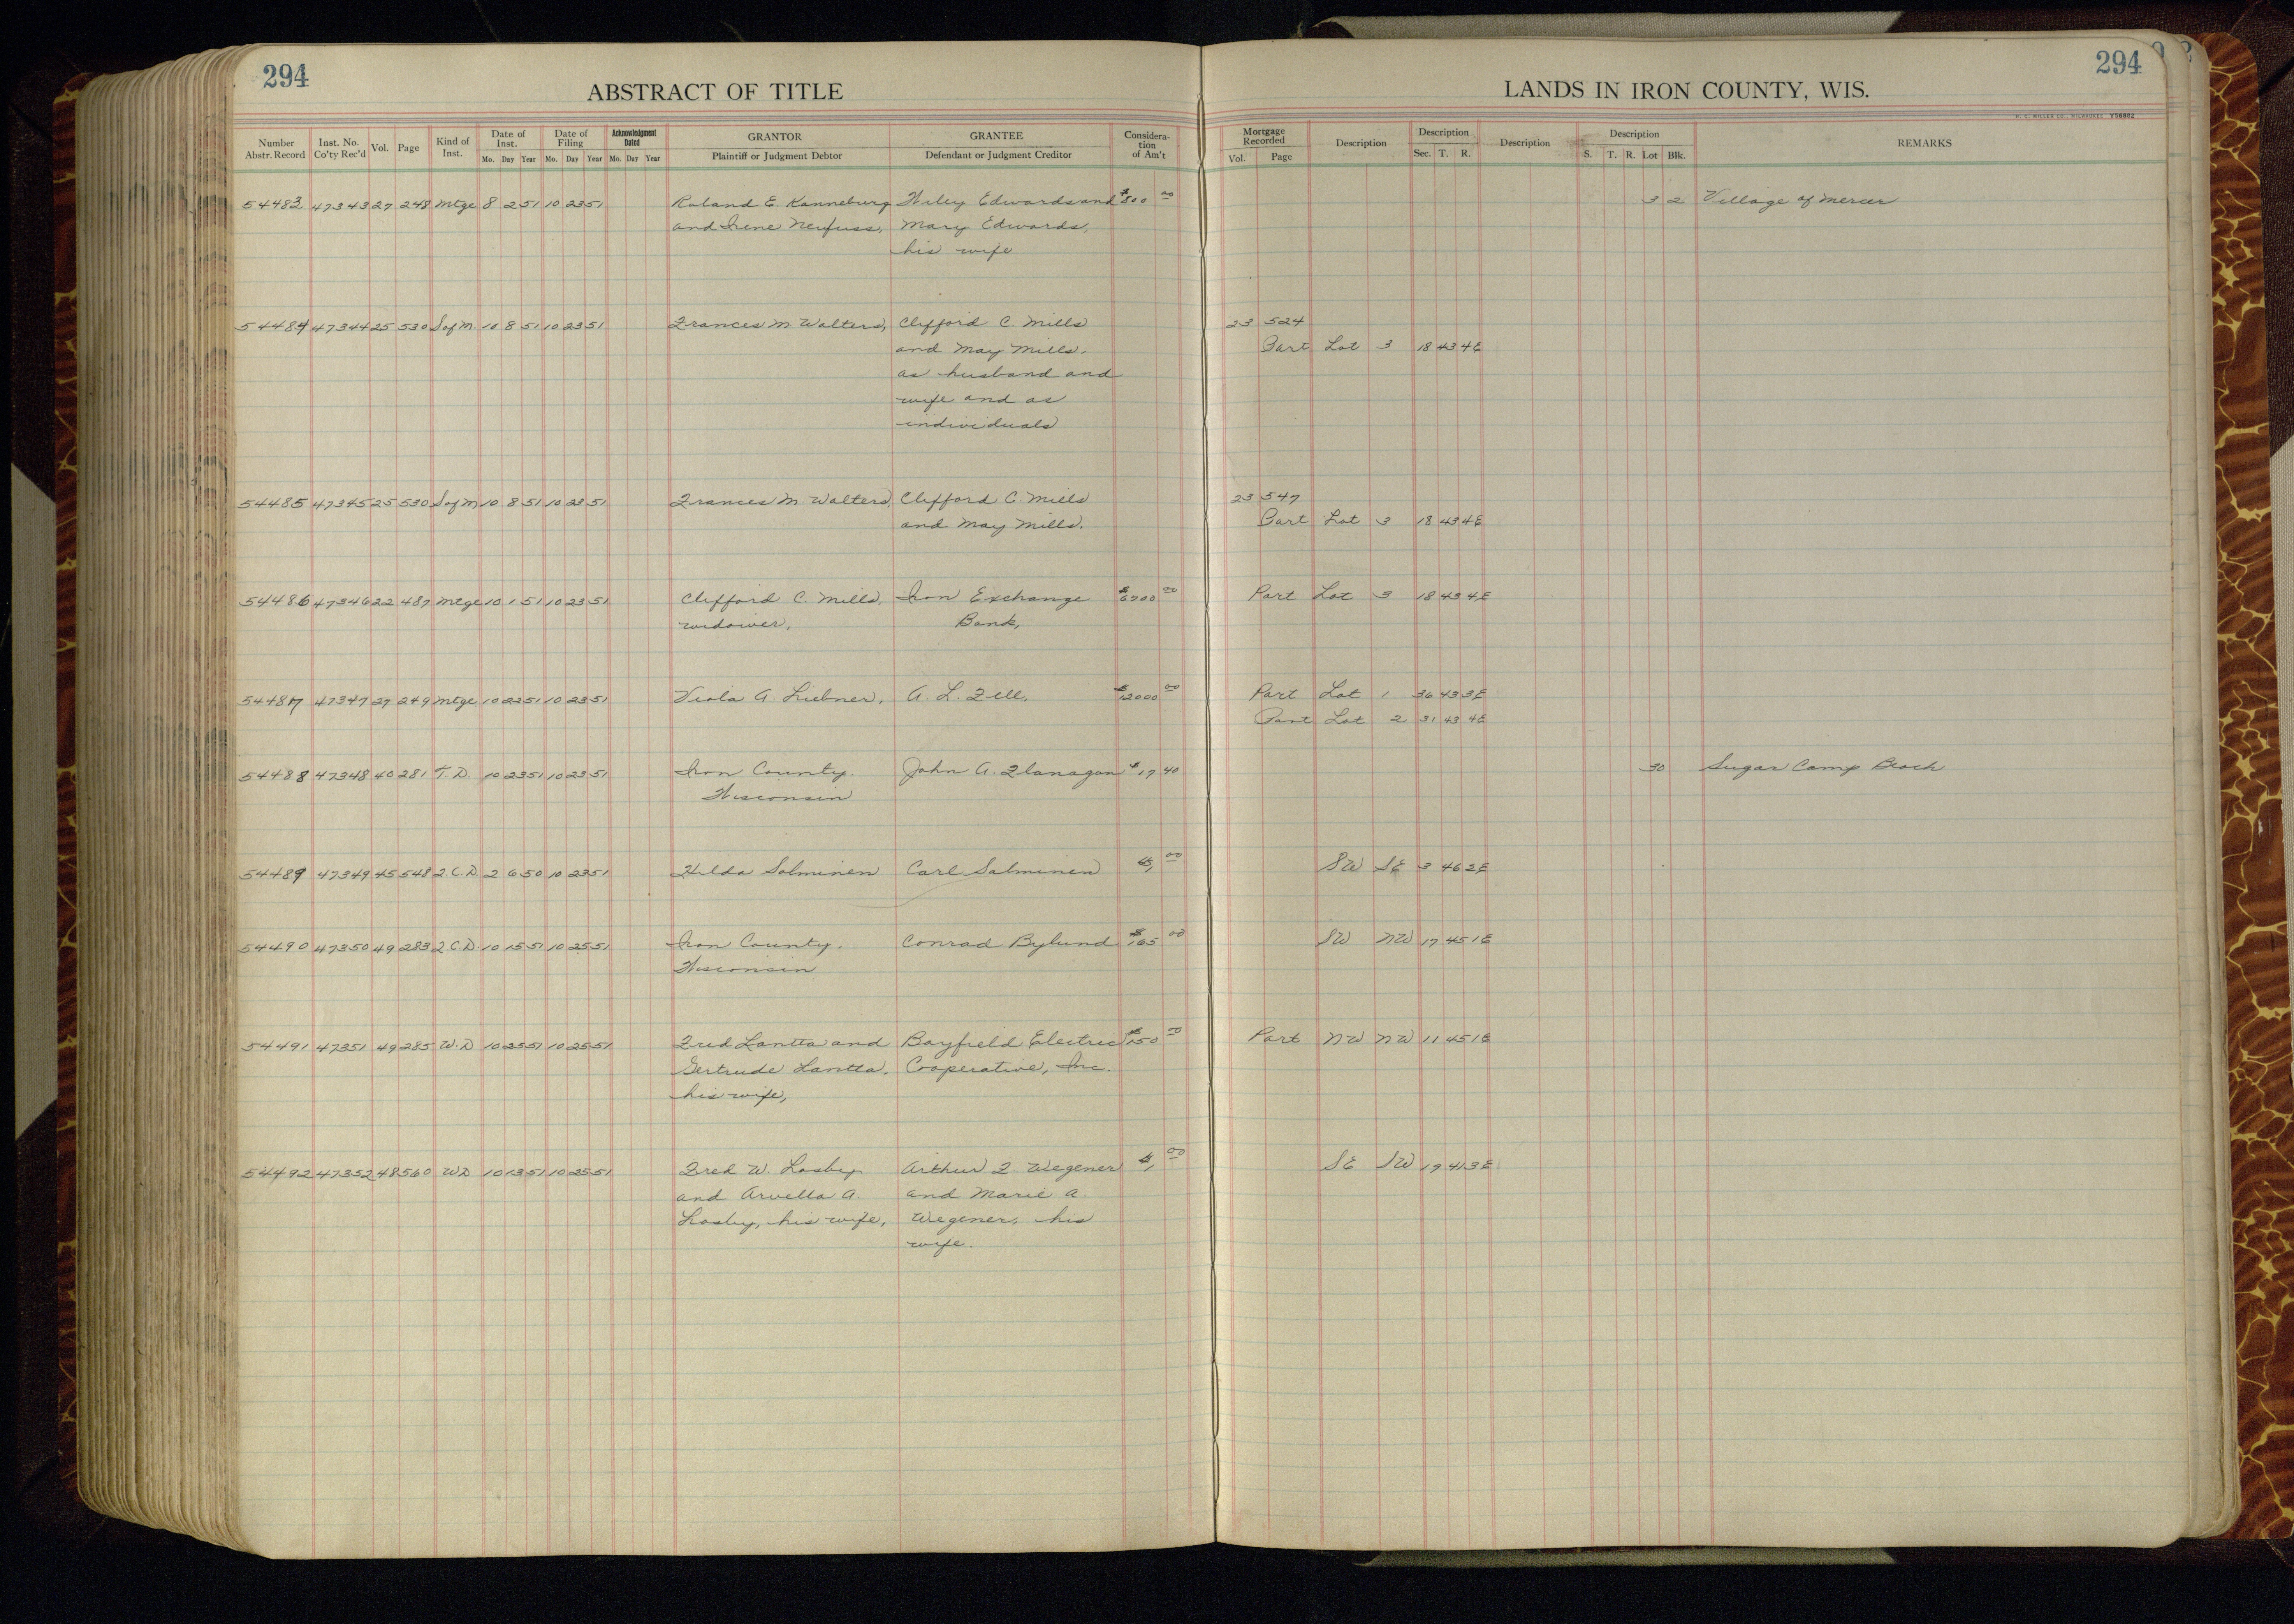 294
ABSTRACT OF TITLE
LANDS IN IRON COUNTY, WIS.
294
Number Abstr. Record Inst. No. Co'ty Rec'd Vol. Page Kind of Inst. Date of Inst. Mo. Day Year Date of Filing Mo. Day Year Acknowledgment Dated Mo. Day Year GRANTOR Plaintiff or Judgment Debtor GRANTEE Defendant or Judgment Creditor Considera-tion of Am't Mortgage Recorded Vol. Page Description Description Sec. T. R. Description Description S. T. R. Lot Blk. REMARKS
54483 47343 27 248 Mtge 8 2 51 10 23 51 Roland E. Kanneburg Wiley Edwards and $800 00 3 2 Village of Mercer
and Irene Neufuss, Mary Edwards,
his wife
54484 47344 25 530 S of M. 10 8 51 10 23 51 Frances M. Walters, Clifford C. Mills 23 524
and May Mills, Part Lot 3 18 43 4E
as husband and
wife and as
individuals
54485 47345 25 530 S of M 10 8 51 10 23 51 Frances M. Walters, Clifford C. Mills 23 547
and May Mills. Part Lot 3 18 43 4E
54486 47346 22 487 Mtge 10 1 51 10 23 51 Clifford C. Mills, Iron Exchange $6700 00 Part Lot 3 18 43 4E
widower, Bank,
54487 47347 27 249 Mtge 10 22 51 10 23 51 Viola A. Liebner, A. L. Zell. $12000 00 Part Lot 1 36 43 3E
Part Lot 2 31 43 4E
54488 47348 40 281 T. D. 10 23 51 10 23 51 Iron County. John A. Flanagan $17 40 30 Sugar Camp Beach
Wisconsin
54489 47349 45 548 2. C. D. 2 6 50 10 23 51 Hilda Salminen Carl Salminen $1, 00 SW SE 3 46 2E
54490 47350 49 283 2 C. D. 10 15 51 10 25 51 Iron County, Conrad Bylund $165 00 SW NW 17 45 1E
Wisconsin
54491 47351 49 285 W. D 10 25 51 10 25 51 Fred Lantta and Bayfield Electric $150 00 Part NW NW 11 45 1E
Gertrude Lantta, Cooperative, Inc.
his wife,
54492 47352 48 560 WD 10 13 51 10 25 51 Fred W. Losby Arthur F. Wegener $1, 00 SE SW 19 41 3E
and Arvella A. and Marie A.
Losby, his wife, Wegener, his
wife.